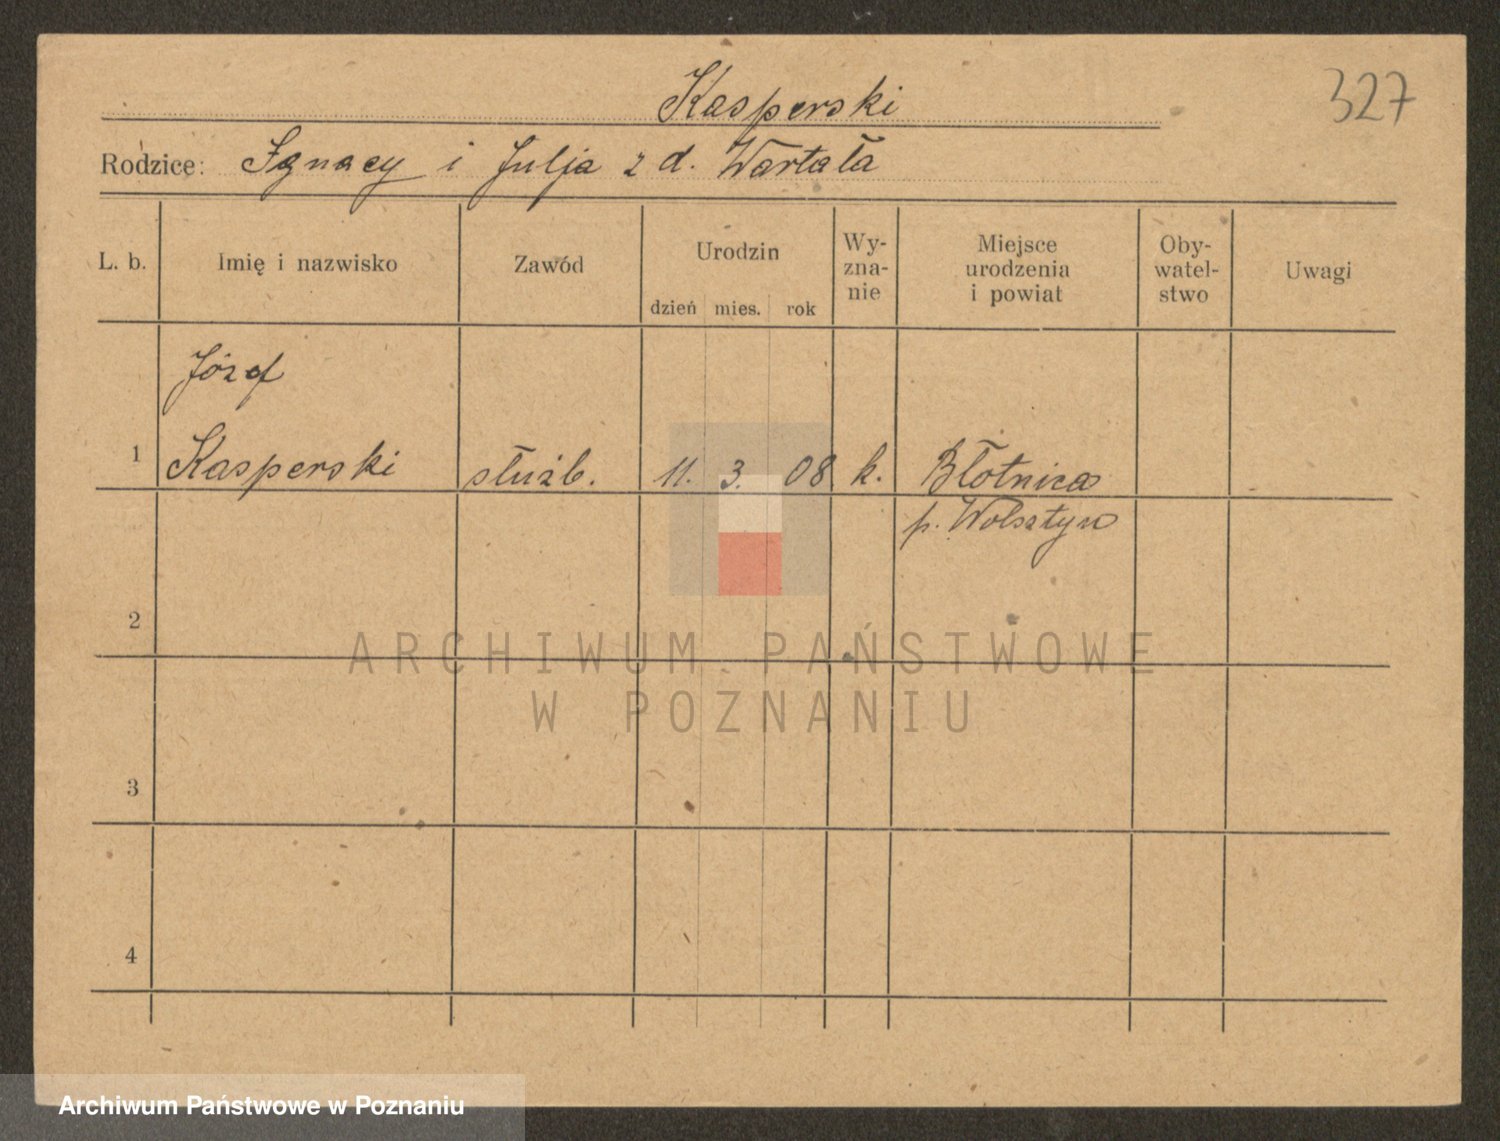 327
Kasperski
Rodzice: Ignacy i Julja z d. Wartała
L. b. Imię i nazwisko Zawód Urodzin dzień mies. rok Wy-zna-nie Miejsce urodzenia i powiat Oby-watel-stwo Uwagi
Józef
1 Kasperski służb. 11. 3. 08 k. Błotnica
p. Wolsztyn
2
ARCHIWUM PAŃSTWOWE
W POZNANIU
3
4
Archiwum Państwowe w Poznaniu